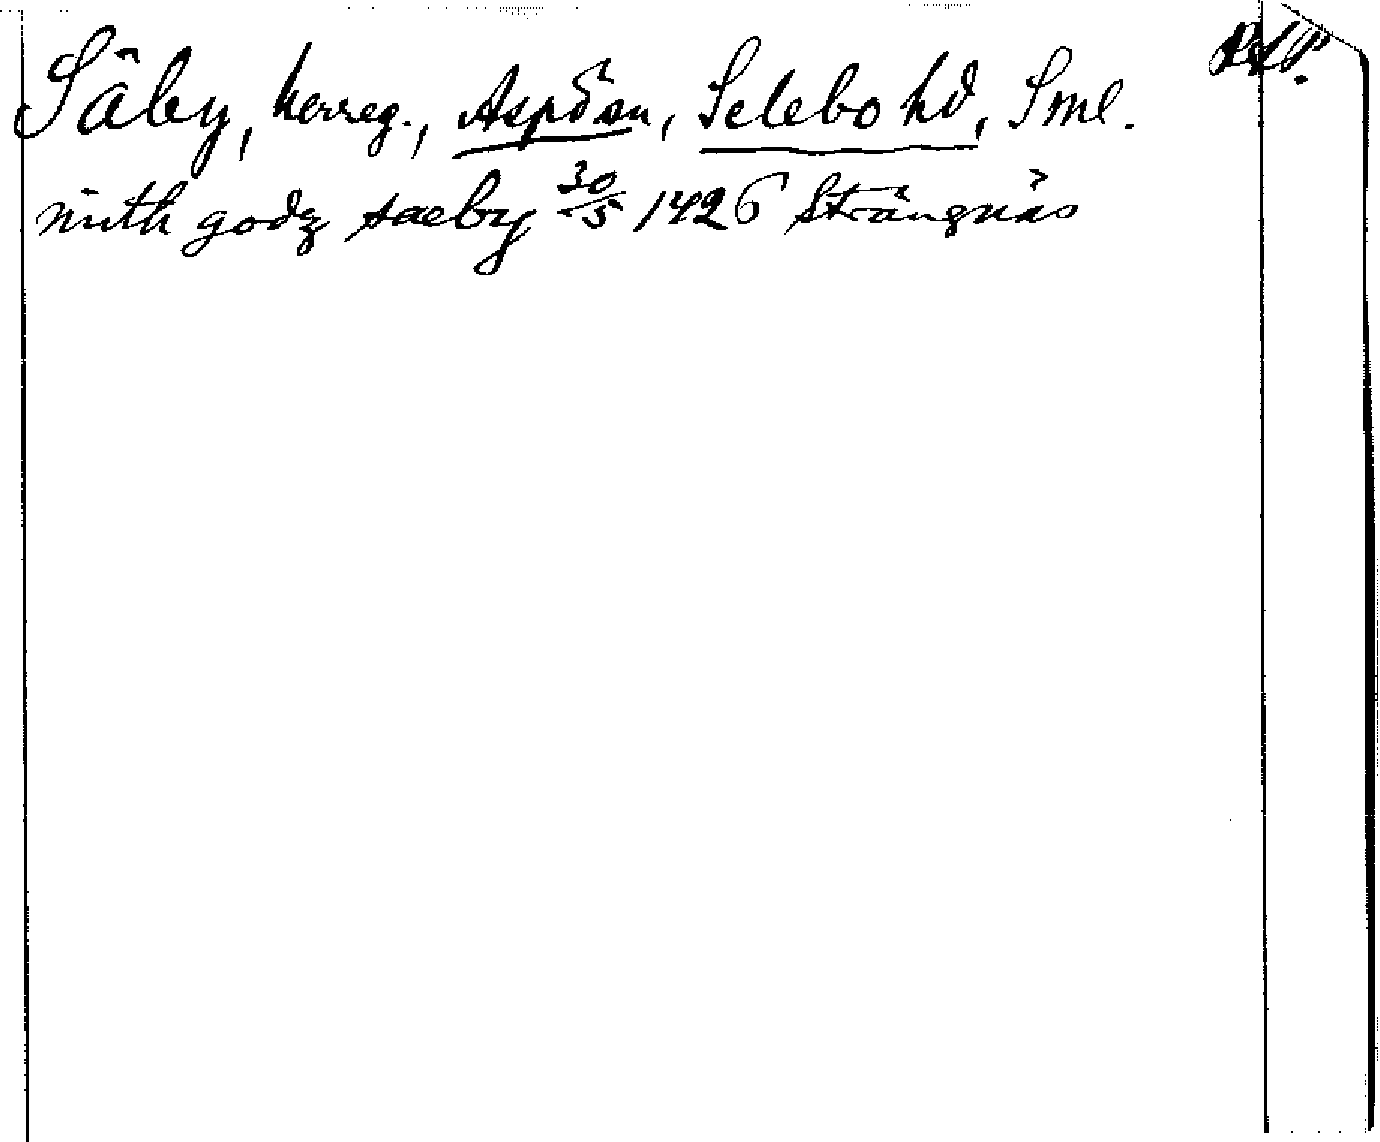 Säby, herreg., Aspö sn, Selebo hd, Sml.
RAP.
mith godz saeby 30/5 1426 Strängnäs